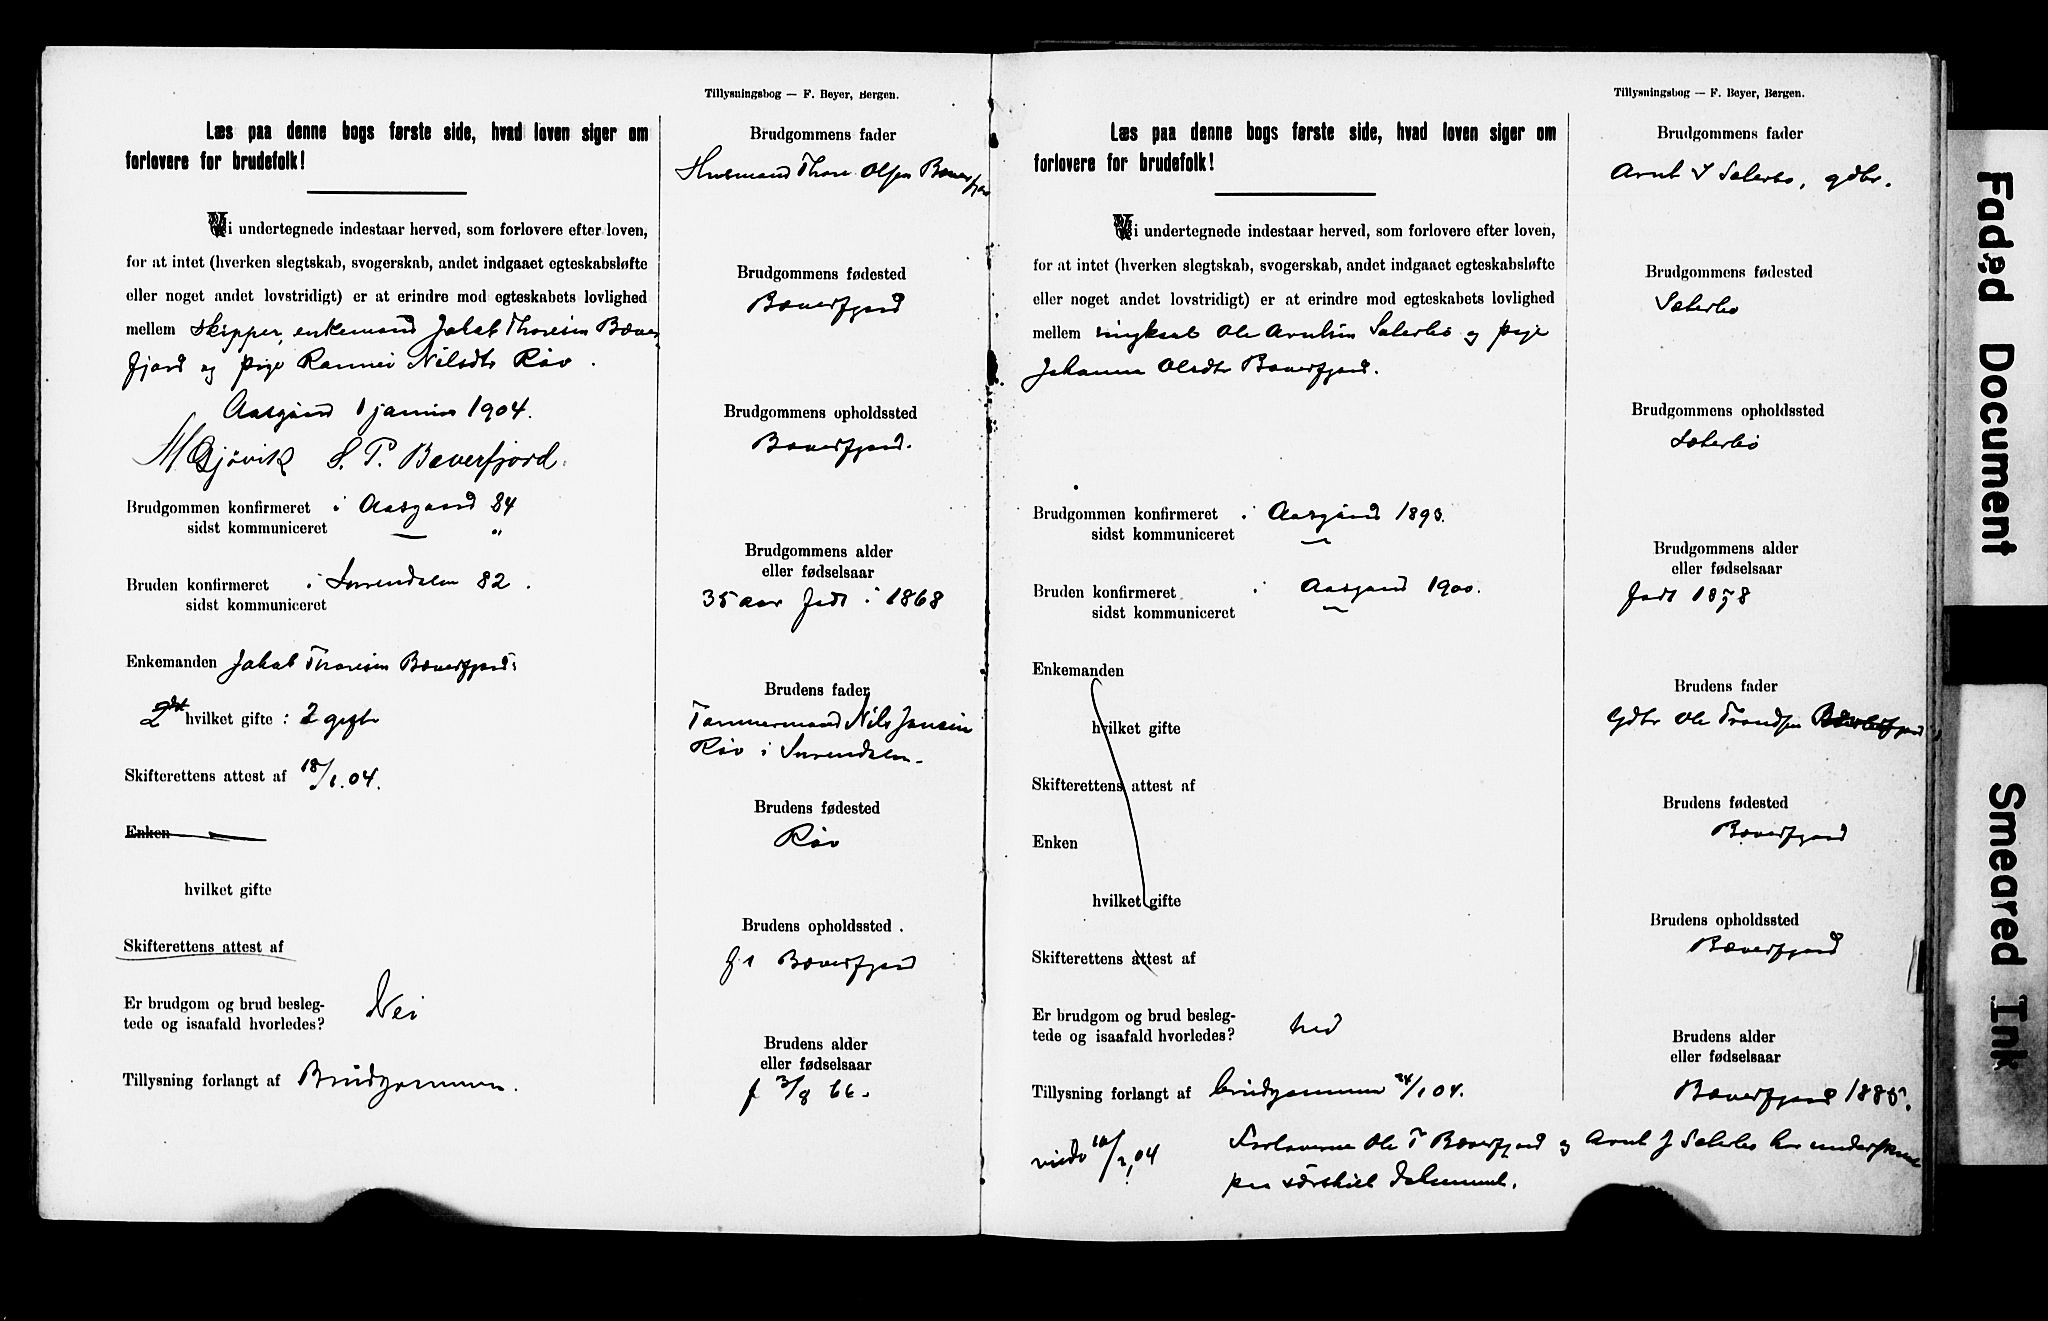 Tillysningsbog — F. Beyer, Bergen.
Læs paa denne bogs første side, hvad loven siger om
forlovere for brudefolk!
Vi undertegnede indestaar herved, som forlovere efter loven,
for at intet (hverken slegtskab, svogerskab, andet indgaaet egteskabsløfte
eller noget andet lovstridigt) er at erindre mod egteskabets lovlighed
mellem skipper, enkemand Jakob Thoresen Bæver
fjord og pige Rannei Nilsdtr Røv.
Aasgaard januar 1904.
M Gjøvik S. P. Bæverfjord.
Brudgommen konfirmeret i Aasgaard 84
sidst kommuniceret — "
Bruden konfirmeret i Surendalen 82.
sidst kommuniceret
Enkemanden Jakob Thoresen Bæverfjord:
2det hvilket gifte : 2 gifte
Skifterettens attest af 18/1.04.
Enken
hvilket gifte
Skifterettens attest af
Er brudgom og brud besleg-
tede og isaafald hvorledes? Nei
Tillysning forlangt af Brudgommen.
Brudgommens fader
Husmand Thore Olsen Bæverfjord
Brudgommens fødested
Bæverfjord
Brudgommens opholdssted
Bæverfjord.
Brudgommens alder
eller fødselsaar
35 aar født i 1868
Brudens fader
Tømmermand Nils Jansen
Røv i Surendalen.
Brudens fødested
Røv
Brudens opholdssted.
Bæverfjord
Brudens alder
eller fødselsaar
f 3/8 66.
Tillysningsbog — F. Beyer, Bergen.
Læs paa denne bogs første side, hvad loven siger om
forlovere for brudefolk!
Vi undertegnede indestaar herved, som forlovere efter loven,
for at intet (hverken slegtskab, svogerskab, andet indgaaet egteskabsløfte
eller noget andet lovstridigt) er at erindre mod egteskabets lovlighed
mellem ungkarl Ole Arntsen Sæterbø og pige
Johanna Olsdtr Bæverfjord.
Brudgommen konfirmeret i Aasgaard 1893.
sidst kommuniceret —
Bruden konfirmeret i Aasgaard 1900.
sidst kommuniceret —
Enkemanden
hvilket gifte
Skifterettens attest af
Enken
hvilket gifte
Skifterettens attest af
Er brudgom og brud besleg-
tede og isaafald hvorledes? Nei
Tillysning forlangt af brudgommen 24/1 04.
viede 10/2, 04 Forloverne Ole T Bæverfjord og Arnt J Sæterbø har underskrevet
paa særskilt dokument.
Brudgommens fader
Arnt J Sæterbø, gdbr.
Brudgommens fødested
Sæterbø
Brudgommens opholdssted
Sæterbø
Brudgommens alder
eller fødselsaar
født 1878
Brudens fader
Gdbr Ole Trondsen Bæverfjord
Brudens fødested
Bæverfjord
Brudens opholdssted
Bæverfjord
Brudens alder
eller fødselsaar
Bæverfjord 1885.
Faded Document
Smeared Ink